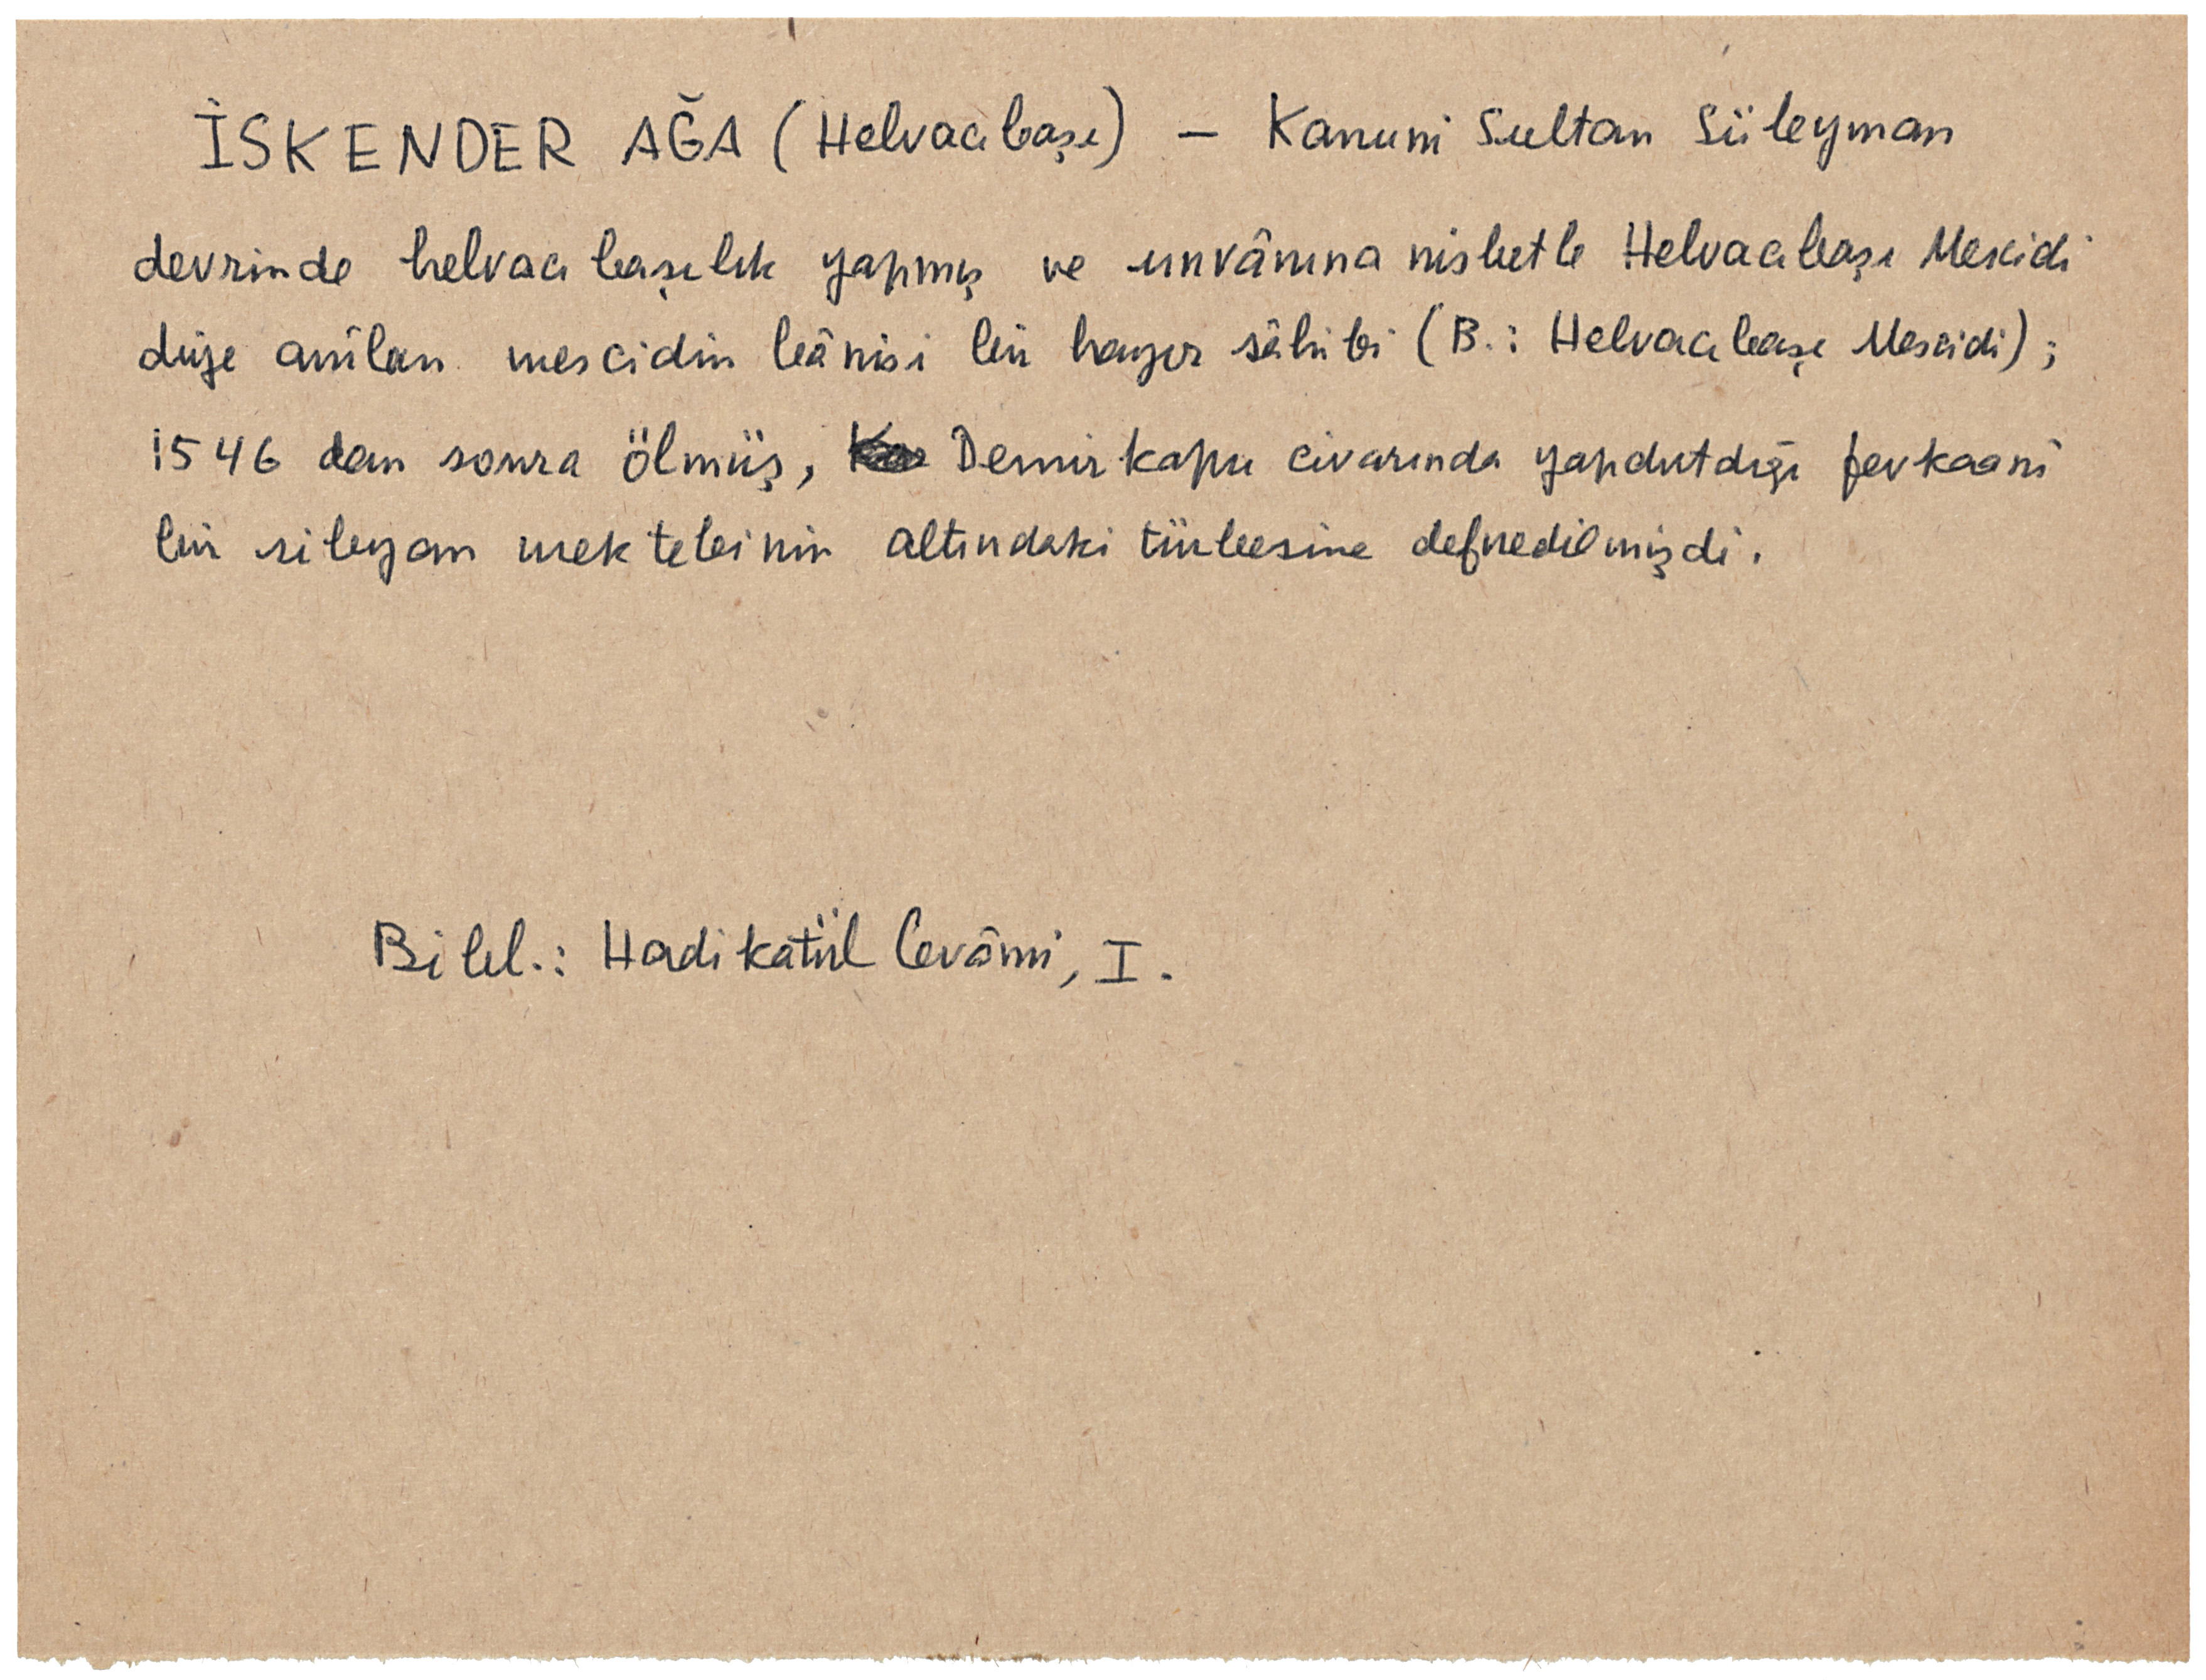 İSKENDER AĞA (Helvacıbaşı) — Kanuni Sultan Süleyman
devrinde helvacıbaşılık yapmış ve unvânına nisbetle Helvacıbaşı Mescidi
diye anılan mescidin bânisi bir hayır sâhibi (B.: Helvacıbaşı Mescidi);
1546 dan sonra ölmüş, Demirkapu civarında yapdırtdığı fevkaanî
bir sibyan mektebinin altındaki türbesine defnedilmişdi.
Bibl.: Hadikatül Cevâmi, I.